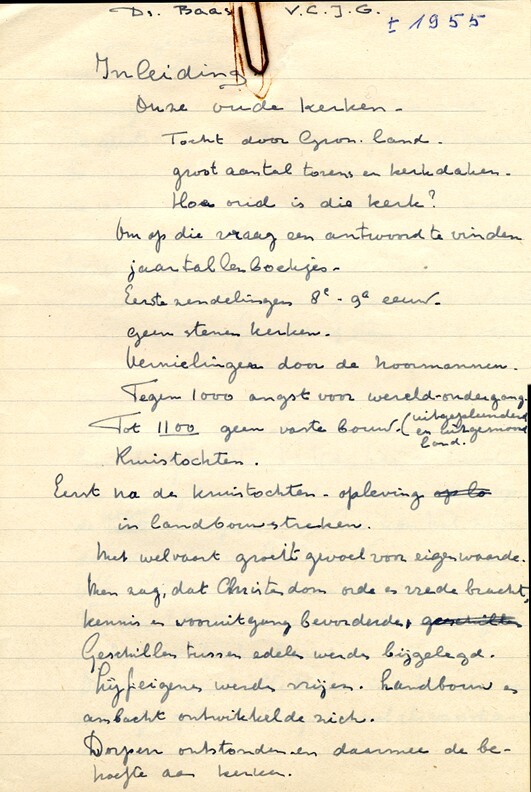 Ds. Baas V.C.J.G.
± 1955
Inleiding
Onze oude kerken -
Tocht door Gron. land.
groot aantal torens en kerkdaken.
Hoe oud is die kerk?
Om op die vraag een antwoord te vinden
jaartallenboekjes.
Eerste zendelingen 8e - 9e eeuw.
geen stenen kerken.
Vernielingen door de Noormannen.
Tegen 1000 angst voor wereld-ondergang.
Tot 1100 geen vaste bouw. (uitgeplunderd
en uitgemoord
land.
Kruistochten.
Eerst na de kruistochten - opleving op lo
in landbouwstreken.
Met welvaart groeit gevoel voor eigenwaarde.
Men zag, dat Christendom orde en vrede bracht,
kennis en vooruitgang bevorderde, geschillen
Geschillen tussen edelen werden bijgelegd.
Lijfeigenen werden vrijen. Landbouw en
ambacht ontwikkelde zich.
Dorpen ontstonden en daarmee de be-
hoefte aan kerken.